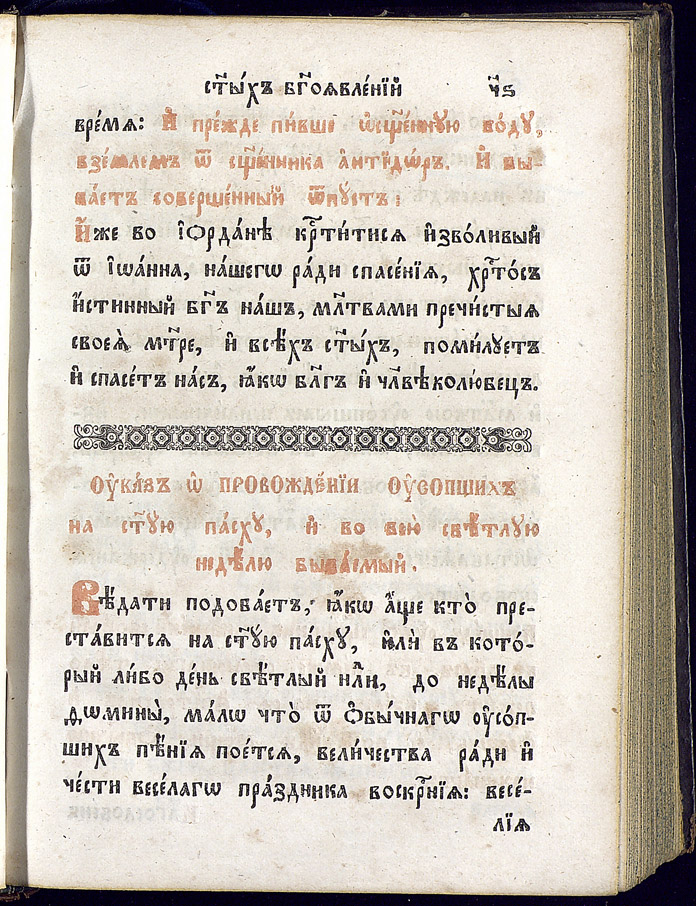 ст҃ы́хъ бг҃оѧвле́нїй ч҃ѕ
вре́мѧ: И҆ пре́жде пи́вше ѡ҆сщ҃е́ннꙋю во́дꙋ,
взе́млемъ ѿ сщ҃е́нника а҆нтїдѡ́ръ. И҆ бы-
ва́етъ соверше́нный ѿпꙋ́стъ:
И҆́же во і҆ѻрда́нѣ кр҃ти́тисѧ и҆зво́ливый
ѿ і҆ѡа́нна, на́шегѡ ра́ди спасе́нїѧ, хр҃то́съ
и҆́стинный бг҃ъ на́шъ, мл҃твами пречи́стыѧ
своеѧ̀ мт҃ре, и҆ всѣ́хъ ст҃ы́хъ, поми́лꙋетъ
и҆ спасе́тъ на́съ, ꙗ҆́кѡ бл҃гъ и҆ чл҃вѣколю́бецъ.
Оу҆ка́зъ ѡ҆ провожде́нїи оу҆со́пшихъ
на ст҃ꙋ́ю па́схꙋ, и҆ во всю̀ свѣ́тлꙋю
недѣ́лю быва́емый.
Вѣ́дати подоба́етъ, ꙗ҆́кѡ а҆́ще кто̀ пре-
ста́витсѧ на ст҃ꙋ́ю па́схꙋ, и҆лѝ въ кото́-
рый ли́бо де́нь свѣ́тлый нл҃и, до недѣ́лы
ѳѡмины̀, ма́лѡ что̀ ѿ ѻ҆бы́чнагѡ оу҆со́п-
шихъ пѣ́нїѧ пое́тсѧ, вели́чества ра́ди и҆
че́сти весе́лагѡ пра́здника воскр҃нїѧ: весе́-
лїѧ